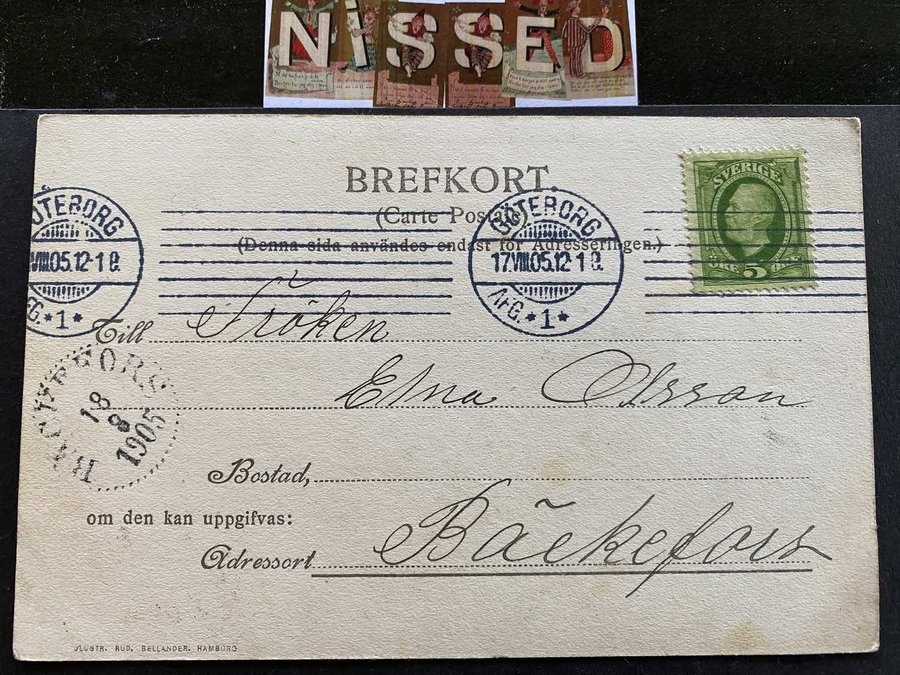 NISSED
BREFKORT.
(Carte Postale)
(Denna sida användes endast för Adresseringen.)
SVERIGE
ÖRE 5 ÖRE
GÖTEBORG
17.VIII.05.12-1 8.
AFG. *1*
GÖTEBORG
VIII.05.12-1 8.
*1*
Till Fröken
Elna Olsson
BÄCKEFORS
18
8
1905
Bostad,
om den kan uppgifvas:
Adressort Bäckefors
JLUSTR. RUD. BELLANDER. HAMBURG